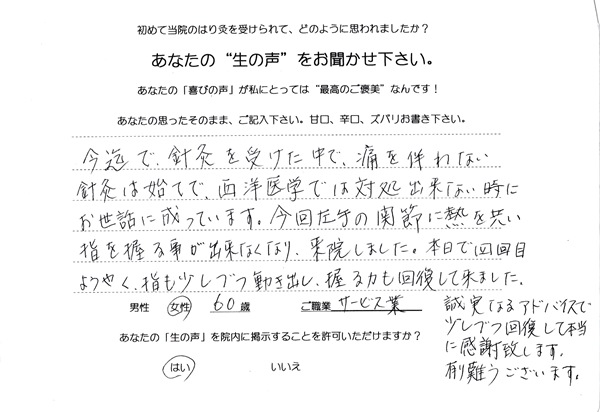 初めて当院のはり灸を受けられて、どのように思われましたか？
あなたの“生の声”をお聞かせ下さい。
あなたの「喜びの声」が私にとっては“最高のご褒美”なんです！
あなたの思ったそのまま、ご記入下さい。甘口、辛口、ズバリお書き下さい。
今迄で、針灸を受けた中で、痛を伴わない
針灸は始てで、西洋医学では対処出来ない時に
お世話に成っています。今回左手の関節に熱を共い
指を握る事が出来なくなり、来院しました。本日で四回目
ようやく、指も少しづつ動き出し、握る力も回復して来ました。
男性 女性 60歳 ご職業 サービス業
あなたの「生の声」を院内に掲示することを許可いただけますか？
はい いいえ
誠実なるアドバイスで
少しづつ回復して本当
に感謝致します。
有難うございます。